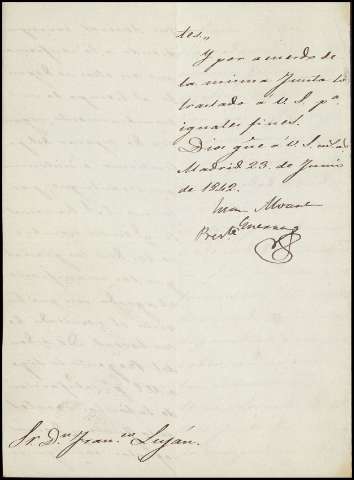 tos,,
Y por acuerdo de
la misma Junta lo
traslado á V. S. pª
iguales fines.
Dios gûe á V. S. m.s a.s
Madrid 23 de Junio
de 1842.
Juan
Sr. D.n Fran.co Luján.